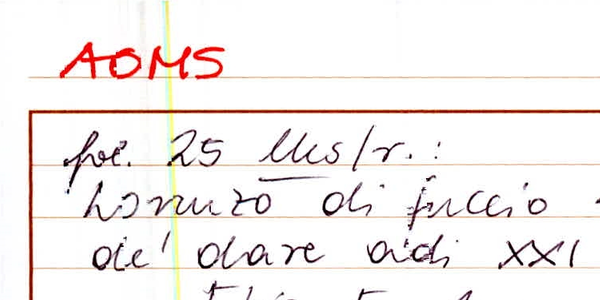 AOMS
fol. 25 lks/r.:
Lorenzo di fuccio
de' dare adi XXI